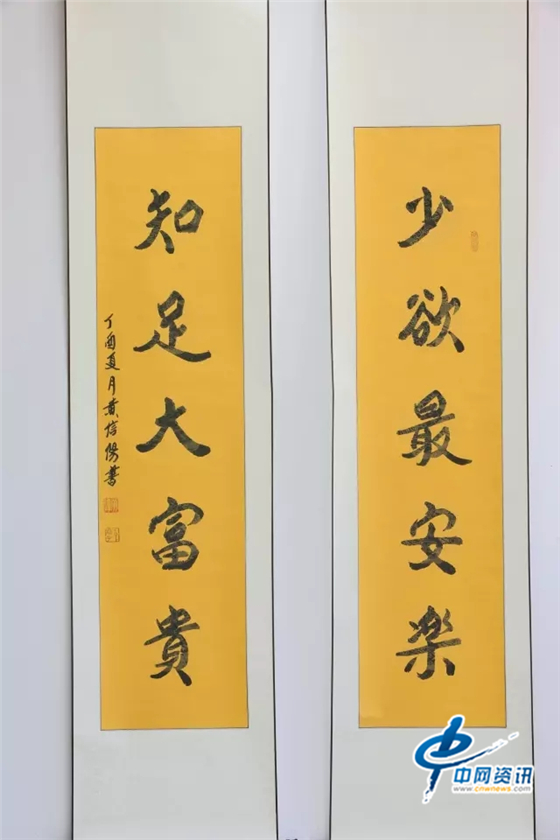 少欲最安樂
知足大富貴
丁酉夏月黄信陽書
中网资讯
www.cnwnews.com